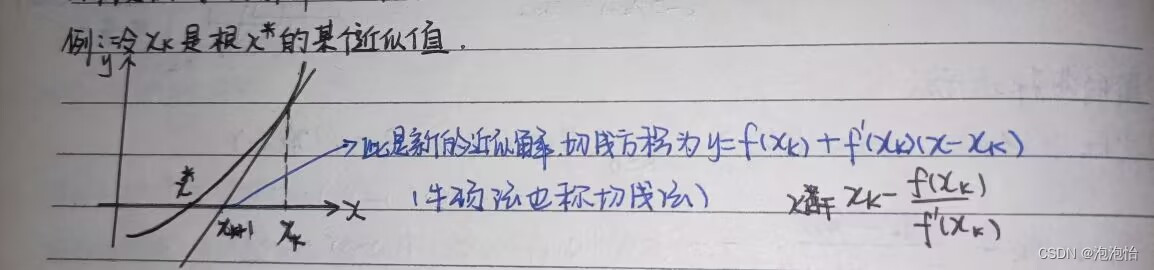 例:令 x_k 是根 x* 的某个近似值.
y
此是新的近似解 切线方程为 y=f(x_k)+f'(x_k)(x-x_k)
x*
(牛顿法也称切线法)
x_{k+1} x_k x
x_k - f(x_k)/f'(x_k)
CSDN @泡泡怡